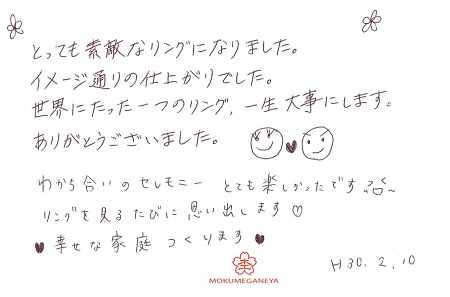 とっても素敵なリングになりました。
イメージ通りの仕上がりでした。
世界にたった一つのリング、一生大事にします。
ありがとうございました。
わかち合いのセレモニー とても楽しかったです
リングを見るたびに思い出します♡
♥幸せな家庭つくります♥
MOKUMEGANEYA
H30.2.10